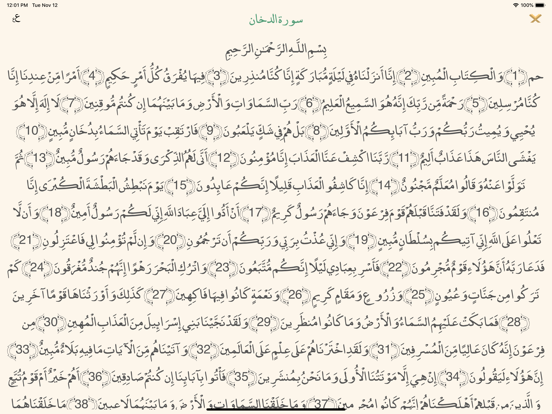 12:01 PM Tue Nov 12 100%
سورة الدخان
بِسْمِ اللَّهِ الرَّحْمَنِ الرَّحِيمِ
حم ﴿1﴾ وَالْكِتَابِ الْمُبِينِ ﴿2﴾ إِنَّا أَنزَلْنَاهُ فِي لَيْلَةٍ مُّبَارَكَةٍ إِنَّا كُنَّا مُنذِرِينَ ﴿3﴾ فِيهَا يُفْرَقُ كُلُّ أَمْرٍ حَكِيمٍ ﴿4﴾ أَمْرًا مِّنْ عِندِنَا إِنَّا
كُنَّا مُرْسِلِينَ ﴿5﴾ رَحْمَةً مِّن رَّبِّكَ إِنَّهُ هُوَ السَّمِيعُ الْعَلِيمُ ﴿6﴾ رَبِّ السَّمَاوَاتِ وَالْأَرْضِ وَمَا بَيْنَهُمَا إِن كُنتُم مُّوقِنِينَ ﴿7﴾ لَا إِلَهَ إِلَّا هُوَ
يُحْيِي وَيُمِيتُ رَبُّكُمْ وَرَبُّ آبَائِكُمُ الْأَوَّلِينَ ﴿8﴾ بَلْ هُمْ فِي شَكٍّ يَلْعَبُونَ ﴿9﴾ فَارْتَقِبْ يَوْمَ تَأْتِي السَّمَاءُ بِدُخَانٍ مُّبِينٍ ﴿10﴾
يَغْشَى النَّاسَ هَذَا عَذَابٌ أَلِيمٌ ﴿11﴾ رَبَّنَا اكْشِفْ عَنَّا الْعَذَابَ إِنَّا مُؤْمِنُونَ ﴿12﴾ أَنَّى لَهُمُ الذِّكْرَى وَقَدْ جَاءَهُمْ رَسُولٌ مُّبِينٌ ﴿13﴾ ثُمَّ
تَوَلَّوْا عَنْهُ وَقَالُوا مُعَلَّمٌ مَّجْنُونٌ ﴿14﴾ إِنَّا كَاشِفُو الْعَذَابِ قَلِيلًا إِنَّكُمْ عَائِدُونَ ﴿15﴾ يَوْمَ نَبْطِشُ الْبَطْشَةَ الْكُبْرَى إِنَّا
مُنتَقِمُونَ ﴿16﴾ وَلَقَدْ فَتَنَّا قَبْلَهُمْ قَوْمَ فِرْعَوْنَ وَجَاءَهُمْ رَسُولٌ كَرِيمٌ ﴿17﴾ أَنْ أَدُّوا إِلَيَّ عِبَادَ اللَّهِ إِنِّي لَكُمْ رَسُولٌ أَمِينٌ ﴿18﴾ وَأَن لَّا
تَعْلُوا عَلَى اللَّهِ إِنِّي آتِيكُم بِسُلْطَانٍ مُّبِينٍ ﴿19﴾ وَإِنِّي عُذْتُ بِرَبِّي وَرَبِّكُمْ أَن تَرْجُمُونِ ﴿20﴾ وَإِن لَّمْ تُؤْمِنُوا لِي فَاعْتَزِلُونِ ﴿21﴾
فَدَعَا رَبَّهُ أَنَّ هَؤُلَاءِ قَوْمٌ مُّجْرِمُونَ ﴿22﴾ فَأَسْرِ بِعِبَادِي لَيْلًا إِنَّكُم مُّتَّبَعُونَ ﴿23﴾ وَاتْرُكِ الْبَحْرَ رَهْوًا إِنَّهُمْ جُندٌ مُّغْرَقُونَ ﴿24﴾ كَمْ
تَرَكُوا مِن جَنَّاتٍ وَعُيُونٍ ﴿25﴾ وَزُرُوعٍ وَمَقَامٍ كَرِيمٍ ﴿26﴾ وَنَعْمَةٍ كَانُوا فِيهَا فَاكِهِينَ ﴿27﴾ كَذَلِكَ وَأَوْرَثْنَاهَا قَوْمًا آخَرِينَ
﴿28﴾ فَمَا بَكَتْ عَلَيْهِمُ السَّمَاءُ وَالْأَرْضُ وَمَا كَانُوا مُنظَرِينَ ﴿29﴾ وَلَقَدْ نَجَّيْنَا بَنِي إِسْرَائِيلَ مِنَ الْعَذَابِ الْمُهِينِ ﴿30﴾ مِن
فِرْعَوْنَ إِنَّهُ كَانَ عَالِيًا مِّنَ الْمُسْرِفِينَ ﴿31﴾ وَلَقَدِ اخْتَرْنَاهُمْ عَلَى عِلْمٍ عَلَى الْعَالَمِينَ ﴿32﴾ وَآتَيْنَاهُم مِّنَ الْآيَاتِ مَا فِيهِ بَلَاءٌ مُّبِينٌ ﴿33﴾
إِنَّ هَؤُلَاءِ لَيَقُولُونَ ﴿34﴾ إِنْ هِيَ إِلَّا مَوْتَتُنَا الْأُولَى وَمَا نَحْنُ بِمُنشَرِينَ ﴿35﴾ فَأْتُوا بِآبَائِنَا إِن كُنتُمْ صَادِقِينَ ﴿36﴾ أَهُمْ خَيْرٌ أَمْ قَوْمُ تُبَّعٍ
وَالَّذِينَ مِن قَبْلِهِمْ أَهْلَكْنَاهُمْ إِنَّهُمْ كَانُوا مُجْرِمِينَ ﴿37﴾ وَمَا خَلَقْنَا السَّمَاوَاتِ وَالْأَرْضَ وَمَا بَيْنَهُمَا لَاعِبِينَ ﴿38﴾ مَا خَلَقْنَاهُمَا